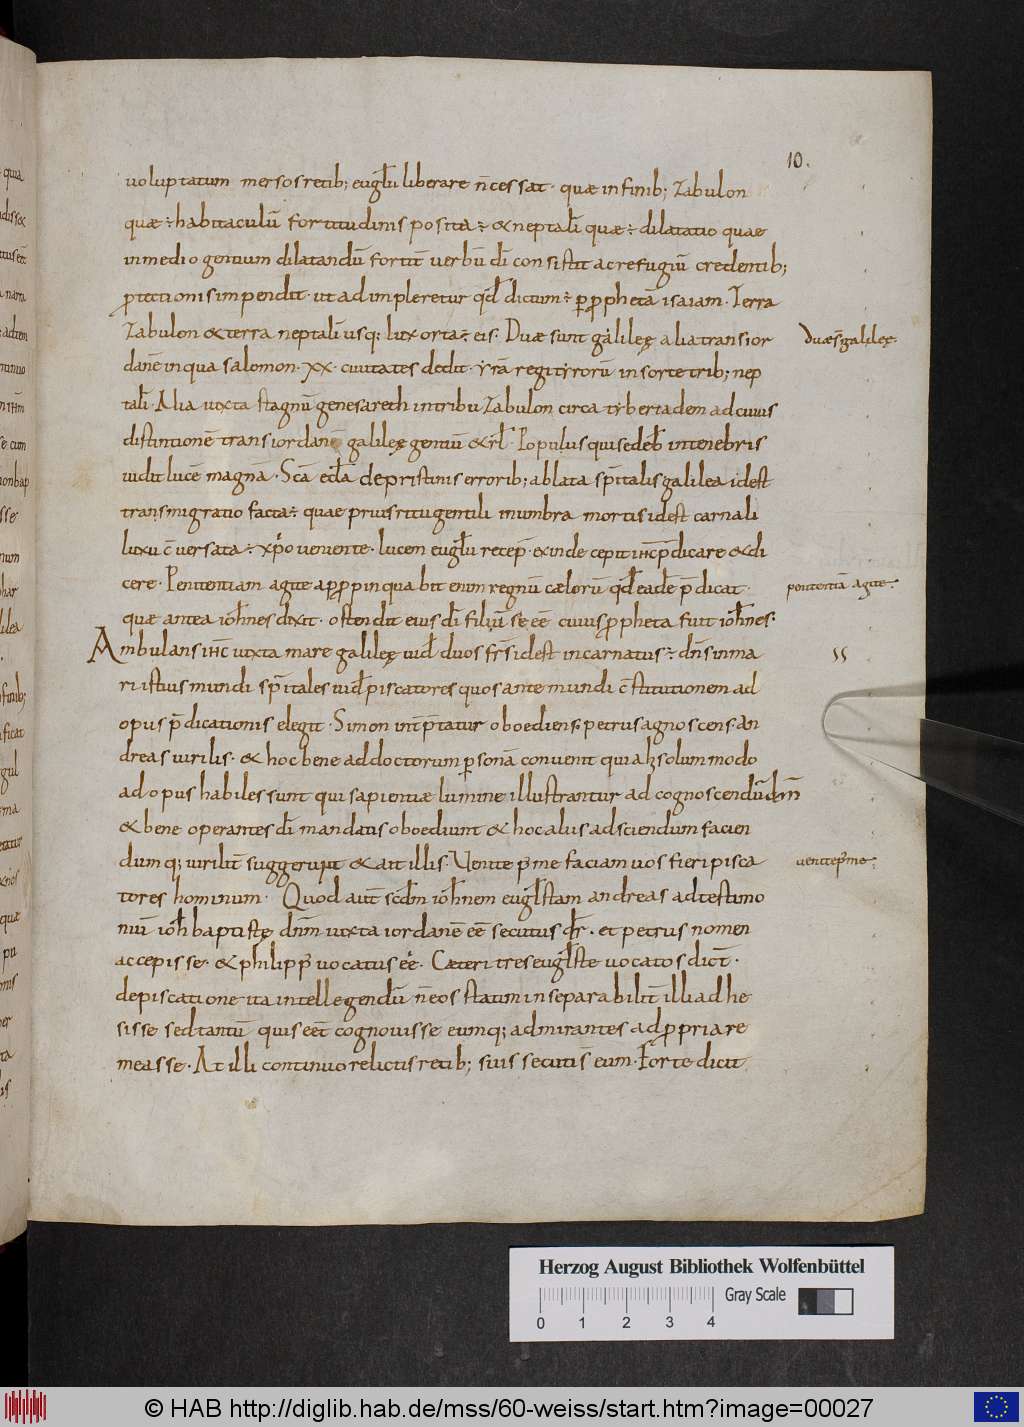 10.
uoluptatum mersos retib; eugłiu liberare n̄ cessat · quæ in finib; zabulon
quæ ÷ habitaculū fortitudinis posita ÷ & neptalī quæ ÷ dilatatio quae
in medio gentium dilatandū fortit̄ uerbū dī consistit ac refugiū credentib;
ꝓtectionis impendit · ut adimpleretur qđ dictum ÷ ꝑ ꝓphetā isaiam · Terra
Zabulon & terra neptalī usq; lux orta ÷ eis · Duæ sunt galileę alia trans ior
danē in qua salomon · xx · ciuitates dedit · yrā regi tyrrorū in sorte trib; nep
talī · Alia iuxta stagnū genesareth in tribu zabulon circa tyberiadem ad cuius
distintionē trans iordanē galileę gentiū & rł · Populus qui sedeb̄ in tenebris
uidit lucē magnā · Scā eccła de pristinis errorib; ablata sp̄italis galilea idest
transmigratio facta ÷ quae prius ritu gentili in umbra mortis idest carnali
luxu c̄uersata ÷ xp̄o ueniente · lucem eugłii recep̄ · exinde cepit ihc̄ p̄dicare & di
cere · Penitentiam agite apꝓpinquabit enim regnū cælorū qđ eadē p̄dicat ·
quæ antea ioħnes dixit · ostendit eius dī filiū se eē cuius ꝓpheta fuit ioħnes ·
Ambulans ihc̄ iuxta mare galileę uid̄ duos fr̄s idest incarnatus ÷ dn̄s in ma
ri istius mundi sp̄itales uid̄ piscatores quos ante mundi c̄stitutionem ad
opus p̄dicationis elegit · Simon int̄p̄tatur oboediens · petrus agnoscens an
dreas uirilis · & hoc bene ad doctorum ꝑsonā conuenit quia hi solummodo
ad opus habiles sunt qui sapientiæ lumine illustrantur ad cognoscendū dm̄
& bene operantes dī mandatis oboediunt & hoc aliis ad sciendum facien
dumq; uirilit̄ suggerunt & ait illis · Venite p̄ me faciam uos fieri pisca
tores hominum · Quod aut̄ scđm ioħnem eugłistam andreas ad testimo
niū ioħ baptistę dn̄m iuxta iordanē eē secutus dr̄ · et petrus nomen
accepisse · & philipp; uocatus eē · Cæteri tres eugłiste uocatos dic̄t ·
de piscatione ita intellegendū n̄ eos statim inseparabilit̄ illi adhe
sisse sed tantū quis eēt cognouisse eumq; admirantes ad ꝓpria re
measse · At illi continuo relictis retib; suis secuti s̄ eum · Forte dicit
Duæ s̄ galileę ·
penitentiā agite ·
venite p̄ me ·
Herzog August Bibliothek Wolfenbüttel
0 1 2 3 4
Gray Scale
© HAB http://diglib.hab.de/mss/60-weiss/start.htm?image=00027